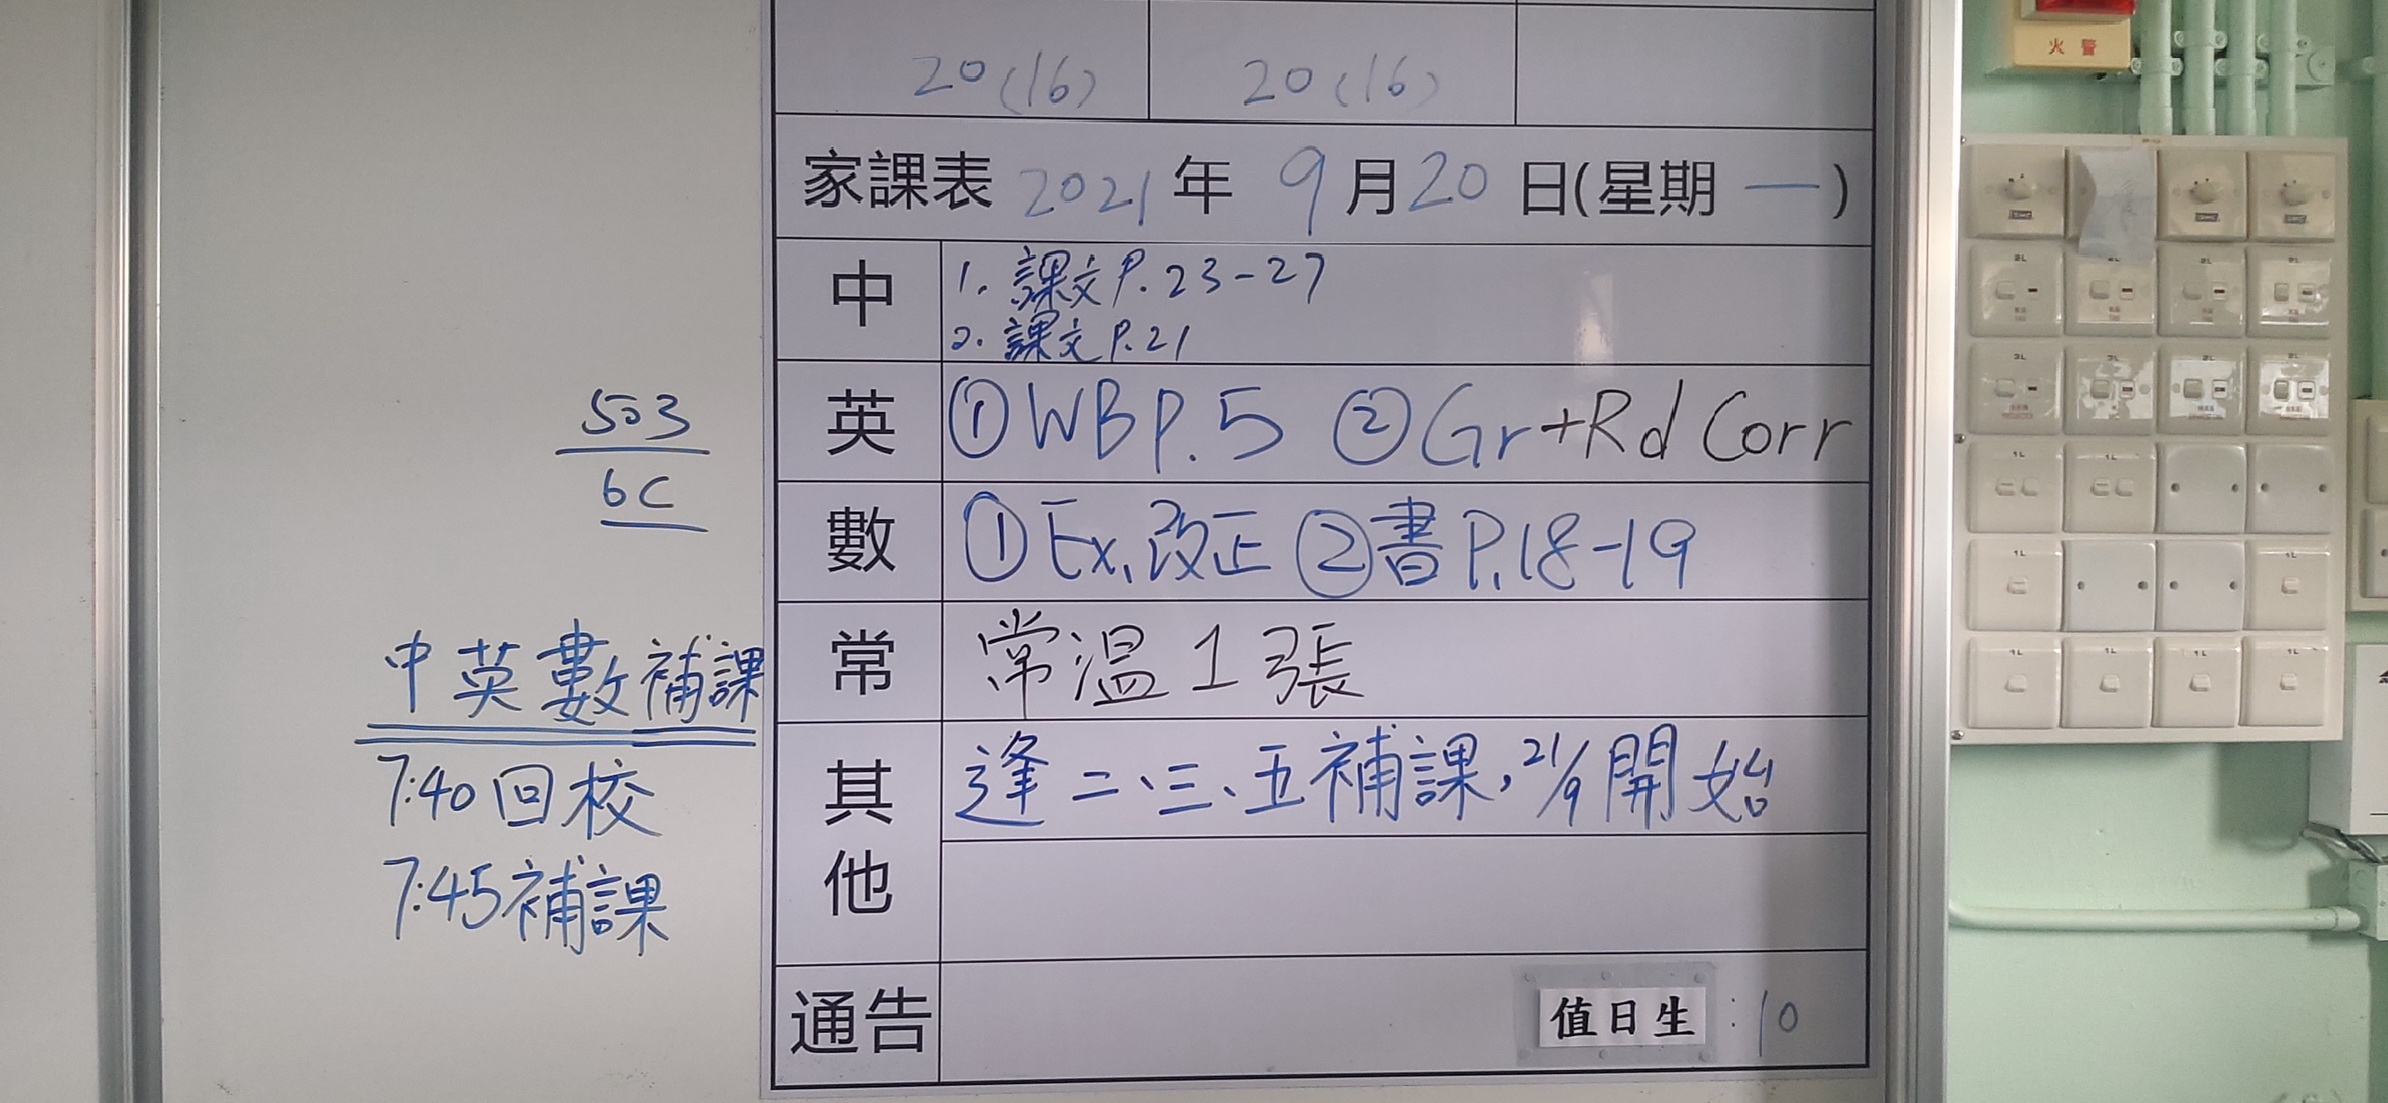 20(16) 20(16)
家課表 2021年 9月20日(星期一)
中
1. 課文P.23-27
2. 課文P.21
英 ①WB P.5 ②Gr+Rd Corr
數 ①Ex.改正 ②書P.18-19
常 常溫1張
其他 逢二、三、五補課,21/9開始
通告 值日生:10
503
6C
中英數補課
7:40回校
7:45補課
火警